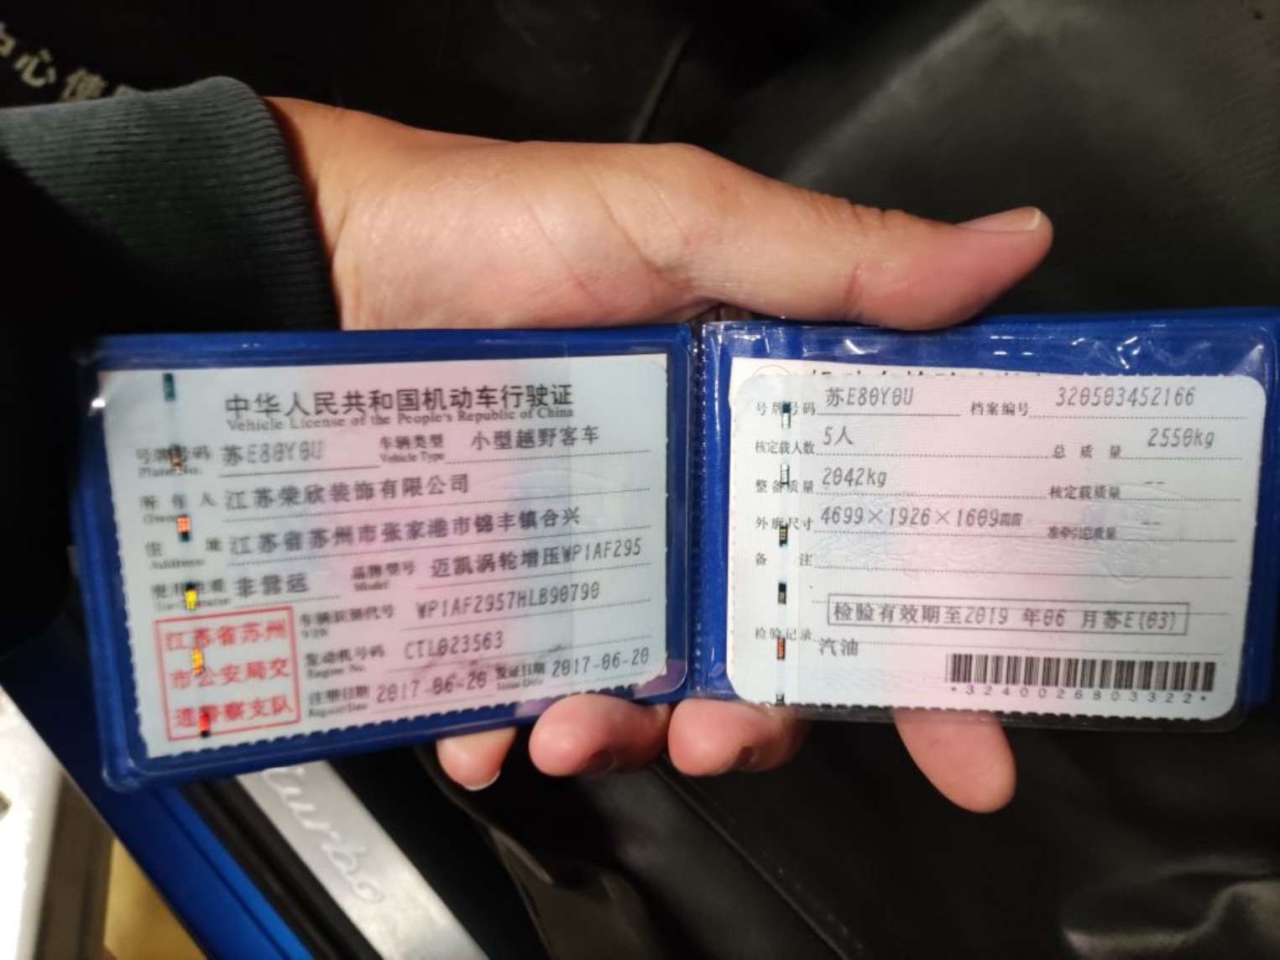 中心
中华人民共和国机动车行驶证
Vehicle License of the People's Republic of China
号牌号码 苏E80Y0U 车辆类型 小型越野客车
Plate No. Vehicle Type
所有人 江苏荣欣装饰有限公司
Owner
住址 江苏省苏州市张家港市锦丰镇合兴
Address
使用性质 非营运 品牌型号 迈凯涡轮增压WP1AF295
Use Character Model
江苏省苏州
市公安局交
通警察支队
车辆识别代号 WP1AF2957HLB90790
VIN
发动机号码 CTL023563
Engine No.
注册日期 2017-06-20 发证日期 2017-06-20
Register Date Issue Date
号牌号码 苏E80Y0U 档案编号 320503452166
核定载人数 5人 总质量 2550kg
整备质量 2042kg 核定载质量 --
外廓尺寸 4699×1926×1609 准牵引总质量 --
备注
检验有效期至2019 年06 月苏E(03)
检验记录
汽油
*3240026803322*
Turbo